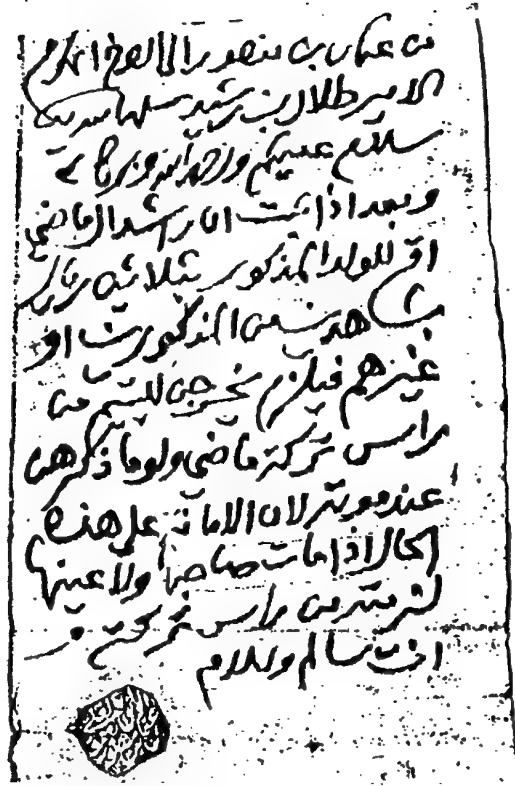 من عباس بن منصور الا الاخ المكرم
الامير طلال بن رشيد سلمه
سلام عليكم ورحمة الله وبركاته
وبعد اذا ثبت ان راشد ال ماضي
اقر للولد المذكور بثلاثة
بشاهدين المذكورين او
غيرهم فيلزم يخرجن لليتيم من
راس تركة ماضي ولو ما ذكرهن
عند موته لان الامانة على هذه
الحال اذا مات صاحبها ولا عينها
من راس تركته
انت سالم والسلام